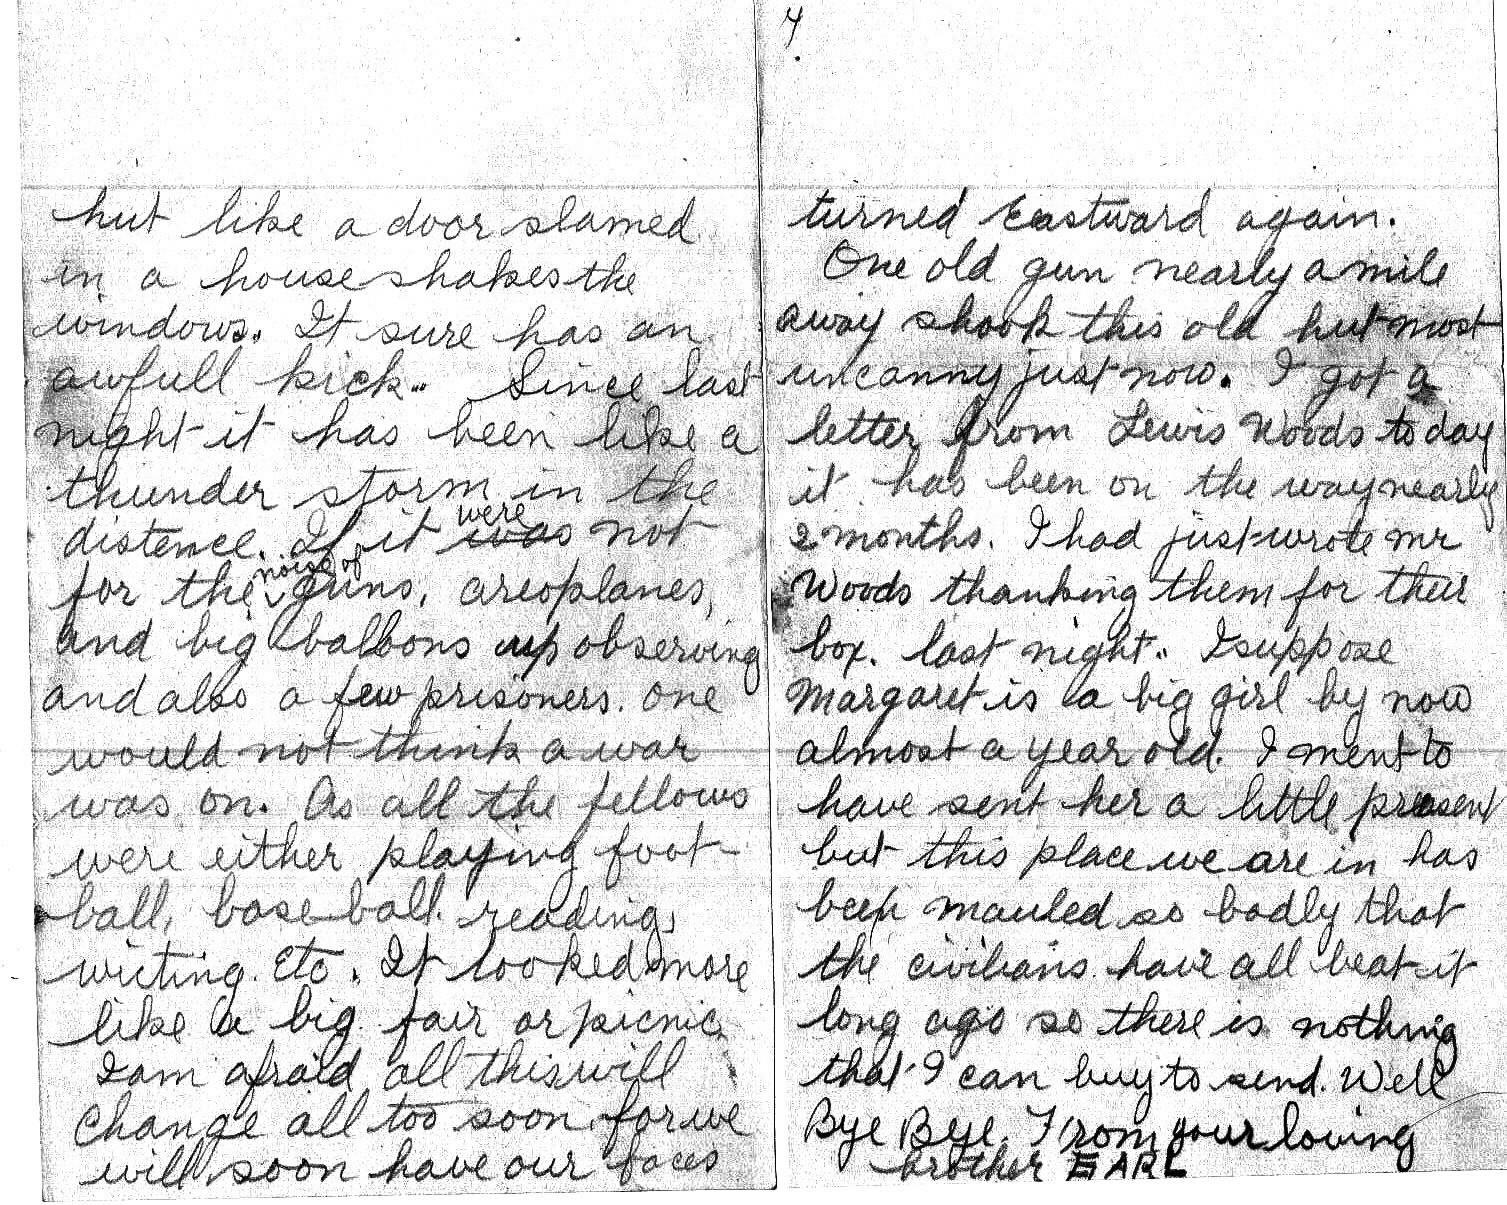 hut like a door slamed
in a house shakes the
windows. It sure has an
awfull kick.. Since last
night it has been like a
thunder storm in the
distence. If it were was not
for the noise of guns, areoplanes,
and big balloons up observing
and also a few prisoners. one
would not think a war
was on. As all the fellows
were either playing foot-
ball, base ball. reading,
writing. Etc. It looked more
like a big fair or picnic.
I am afraid all this will
change all too soon for we
will soon have our faces
4
turned Eastward again.
One old gun nearly a mile
away shook this old hut most
uncanny just now. I got a
letter from Lewis Woods to day
it has been on the way nearly
2 months. I had just wrote Mr
Woods thanking them for their
box. last night.. I suppose
Margaret is a big girl by now
almost a year old. I ment to
have sent her a little present
but this place we are in has
been mauled so badly that
the civilians have all beat it
long ago so there is nothing
that I can buy to send. Well
Bye Bye. From your loving
brother EARL